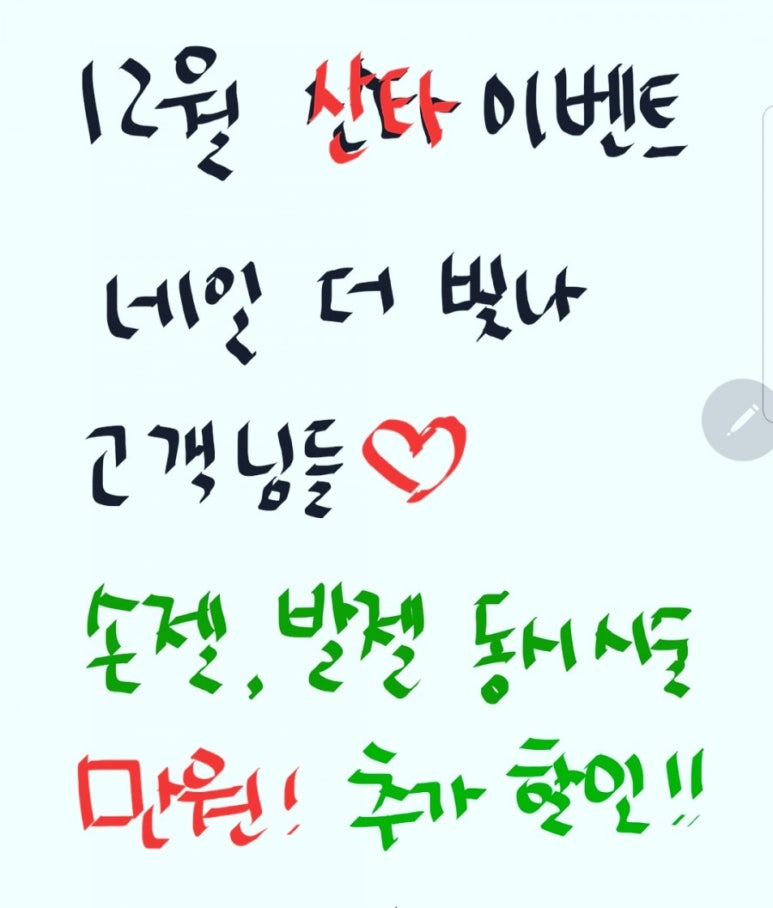 12월 산타 이벤트
네일 더 빛나
고객님들♡
손젤, 발젤 동시 시술
만원! 추가 할인!!